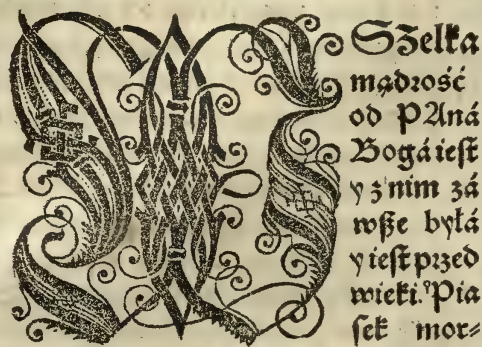 WSzelka
mądrość
od PAná
Bogá ieſt
y z nim zá
wſze byłá
y ieſt przed
wieki. Pia
ſek mor⸗